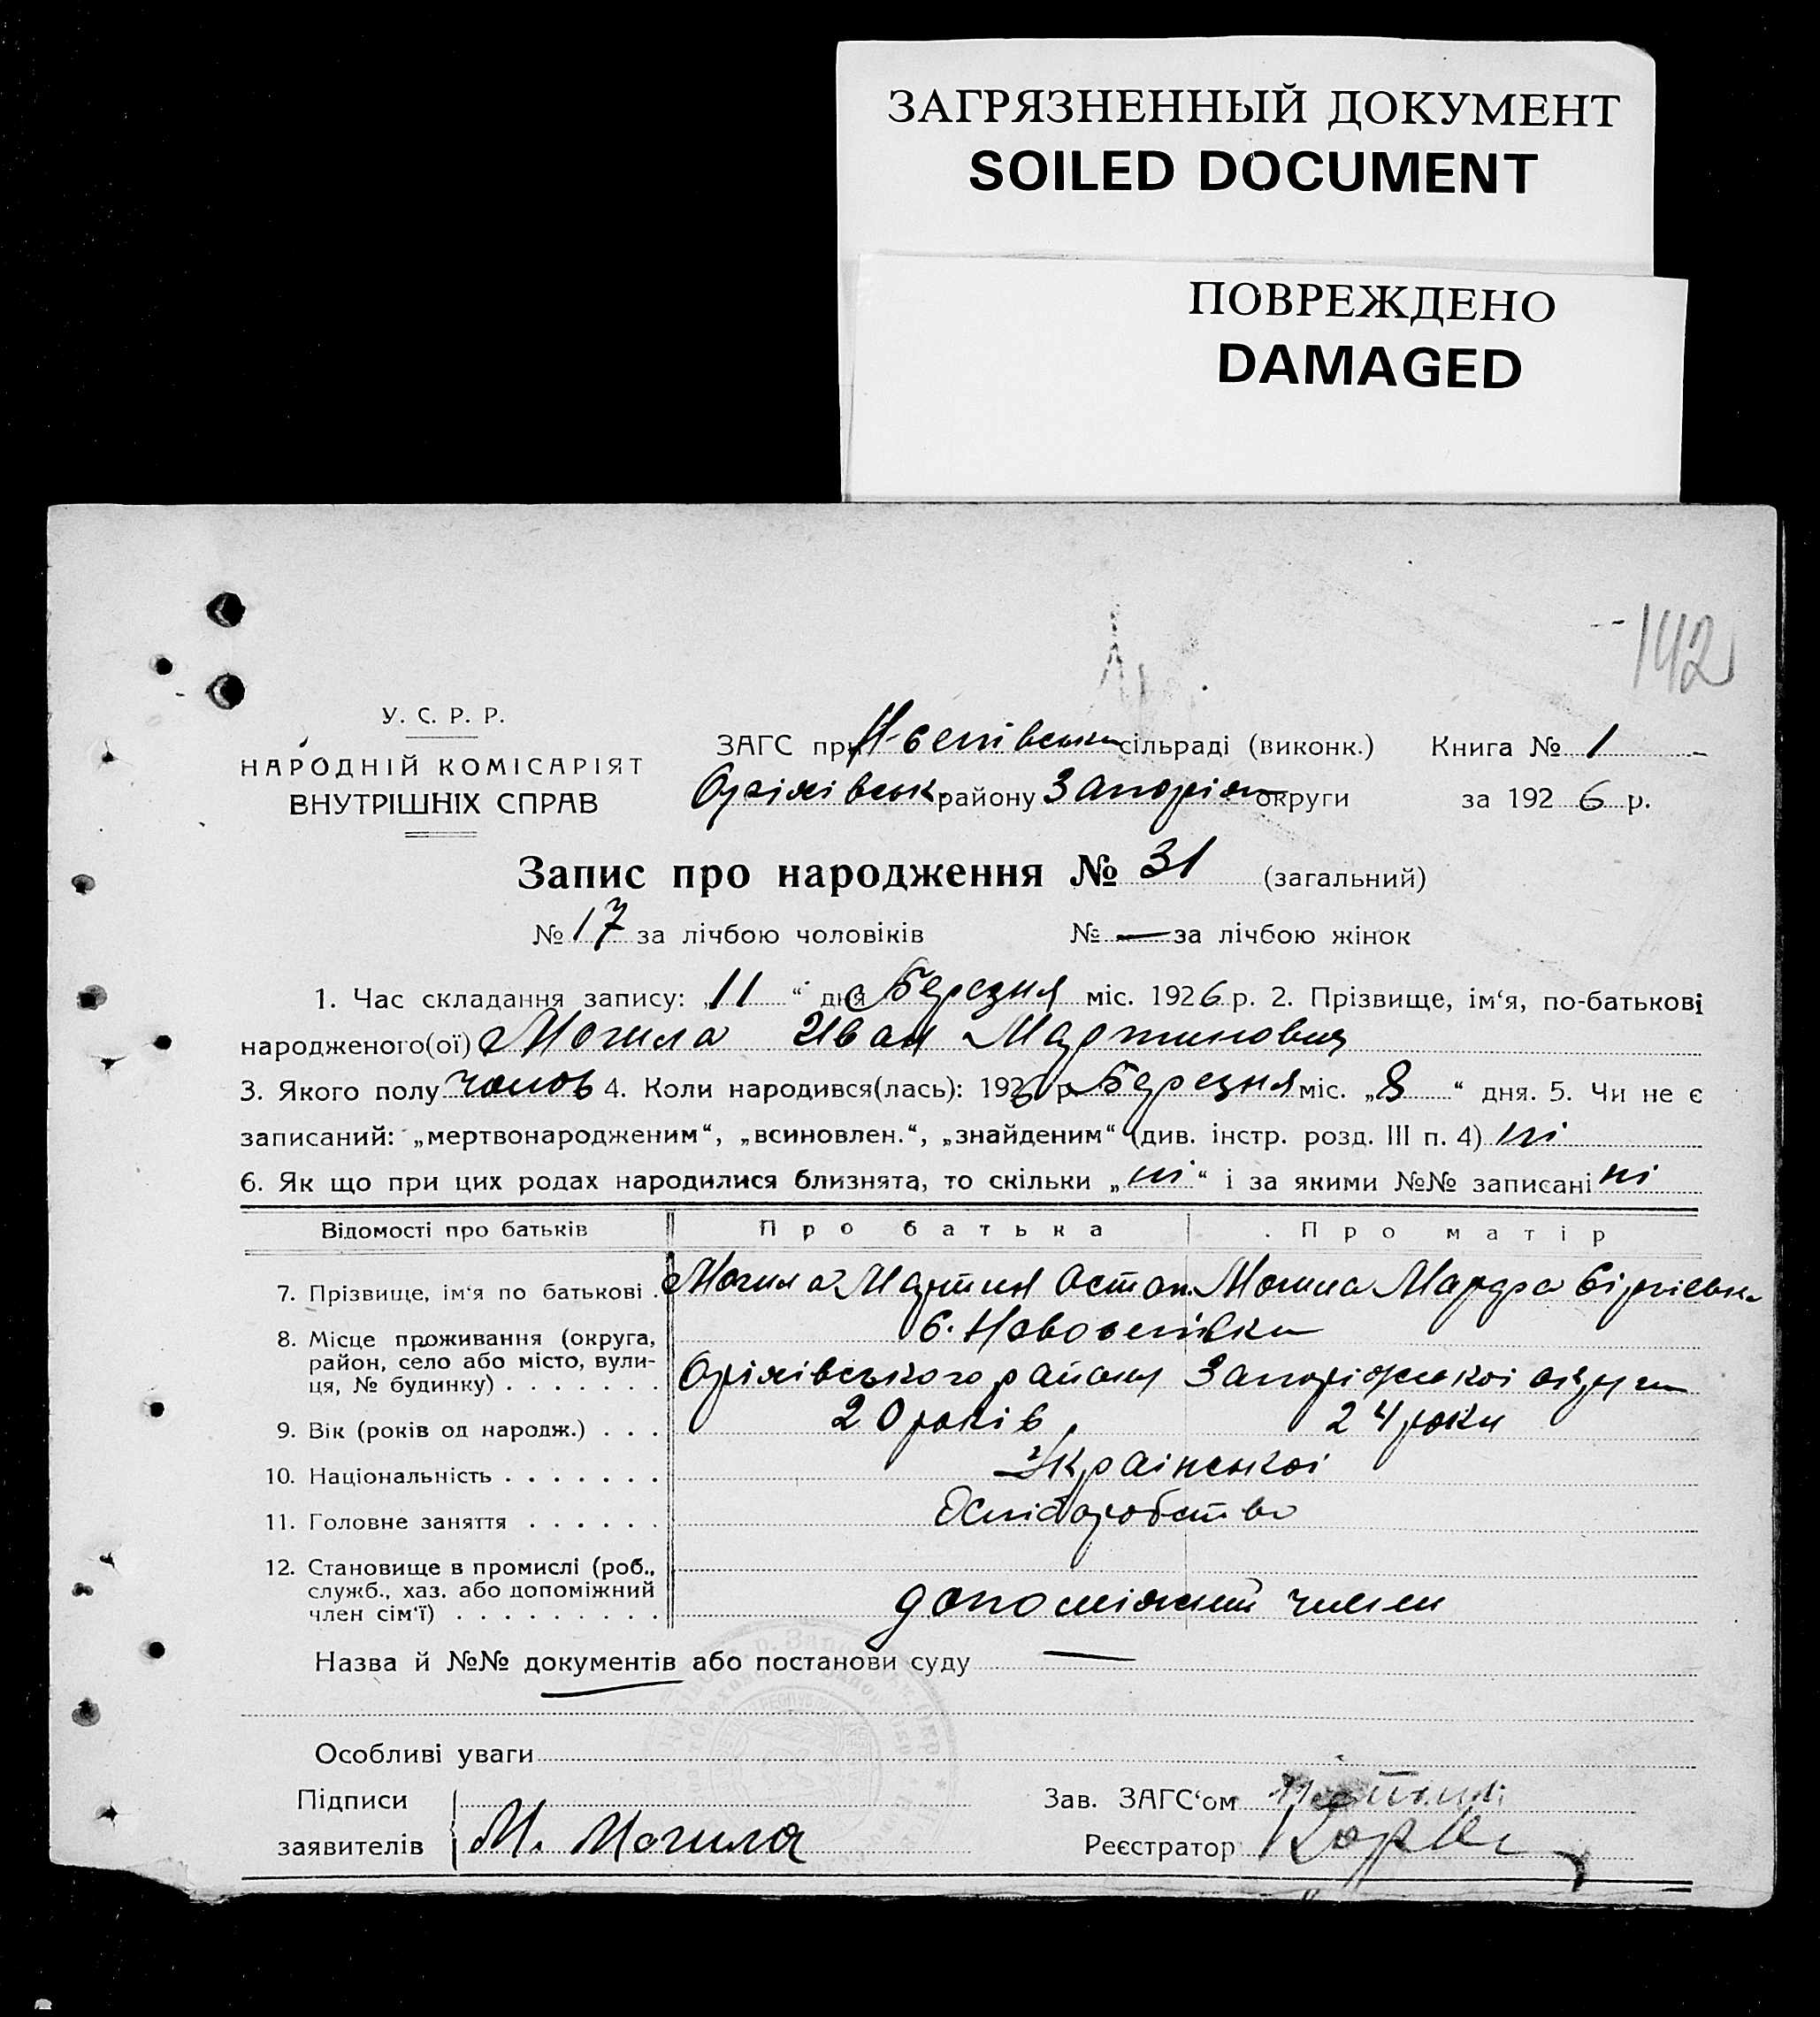 ЗАГРЯЗНЕННЫЙ ДОКУМЕНТ
SOILED DOCUMENT
ПОВРЕЖДЕНО
DAMAGED
142
У. С. Р. Р.
НАРОДНІЙ КОМІСАРІЯТ
ВНУТРІШНІХ СПРАВ
ЗАГС при сільраді (виконк.) Книга № 1
Оріхівськ. району Запоріж округи за 1926 р.
Запис про народження № 31 (загальний)
№ 17 за лічбою чоловіків № — за лічбою жінок
1. Час складання запису: „11“ дня Березня міс. 1926 р. 2. Прізвище, ім‘я, по-батькові
народженого(ої) Могила Иван Мартинович
3. Якого полу чолов 4. Коли народився(лась): 1926 р. Березня міс. „8“ дня. 5. Чи не є
записаний: „мертвонародженим“, „всиновлен.“, „знайденим“ (див. інстр. розд. III п. 4) ні
6. Як що при цих родах народилися близнята, то скільки „ні“ і за якими №№ записані ні
Відомості про батьків Про батька Про матір
7. Прізвище, ім‘я по батькові . Могила Мартин Остап. Могила Марфа
8. Місце проживання (округа, район, село або місто, вулиця, № будинку) . . . . . . . с. Новоселівки
Оріхівського району Запоріжської округи
9. Вік (років од народж.) . . . 20 років 24 роки
10. Національність . . . . . . . Української
11. Головне заняття . . . . . . Хліборобство
12. Становище в промислі (роб., служб., хаз. або допоміжний член сім‘ї) . . . . . . . . . допоміжний член
Назва й №№ документів або постанови суду —
Особливі уваги
Підписи Зав. ЗАГС‘ом
заявителів М. Могила Реєстратор